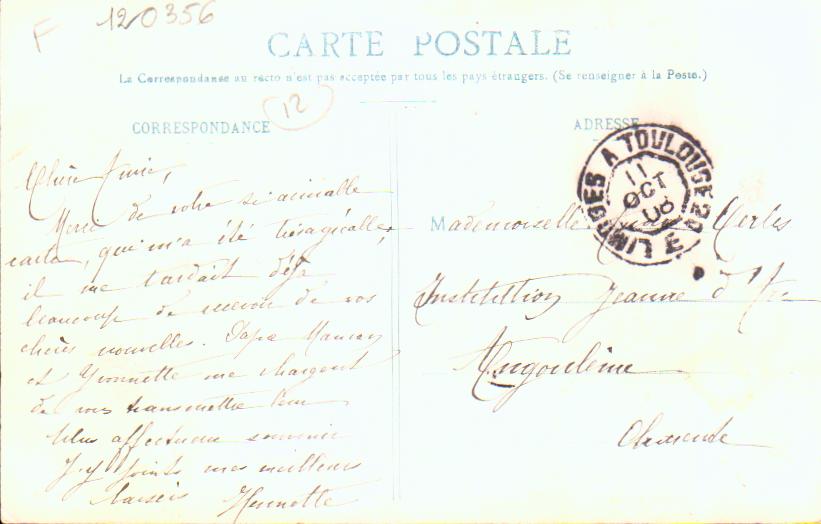 F 120356
CARTE POSTALE
La Correspondance au recto n'est pas acceptée par tous les pays étrangers. (Se renseigner à la Poste.)
12
CORRESPONDANCE
Chère Amie,
Merci de votre si aimable
carte, qui m'a été très agréable,
il me tardait déjà
beaucoup de recevoir de vos
chères nouvelles. Papa Maman
et Yvonnette me chargent
de vous transmettre leur
plus affectueux souvenir
J'y joints mes meilleurs
baisers Henriette
ADRESSE
LIMOGES A TOULOUSE 2° E
11
OCT
08
Mademoiselle
Institution Jeanne d'Arc
Angoulême
Charente